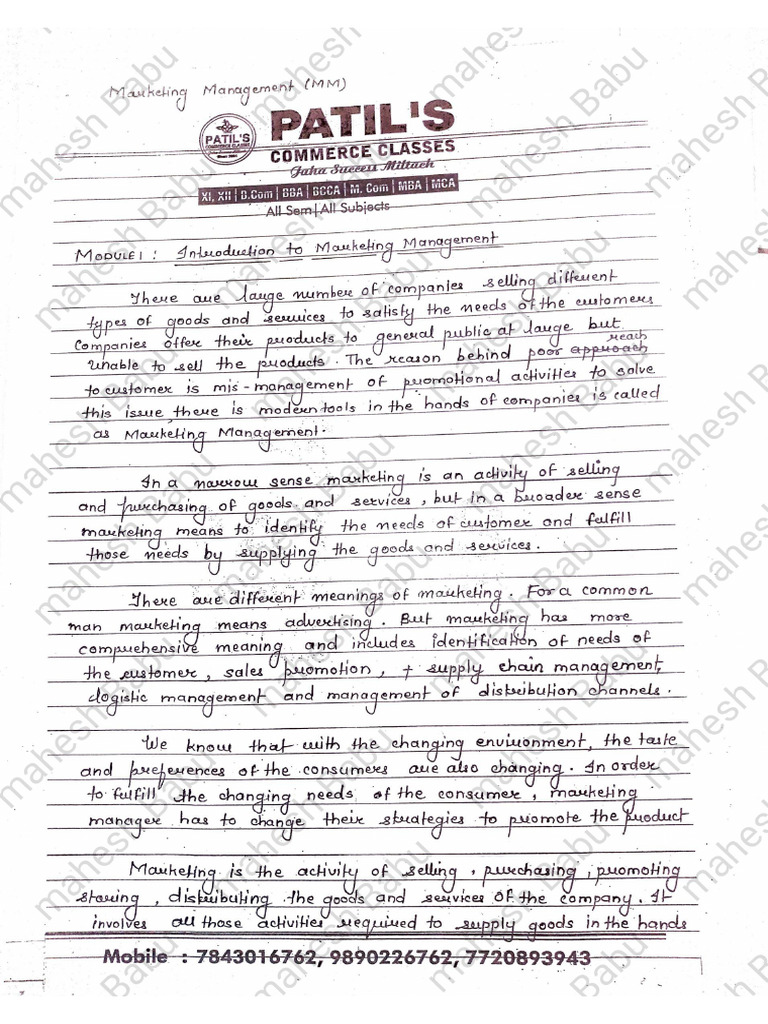 Marketing Management (MM)
PATIL'S
PATIL'S
COMMERCE CLASSES
COMMERCE CLASSES
Jaha Success Miltaeh
XI, XII | B.Com | BBA | BCCA | M. Com | MBA | MCA
All Sem | All Subjects
MODULE 1 : Introduction to Marketing Management
There are large number of companies selling different
types of goods and services to satisfy the needs of the customers
Companies offer their products to general public at large but
unable to sell the products. The reason behind poor approach reach
to customer is mis-management of promotional activities to solve
this issue, there is modern tools in the hands of companies is called
as Marketing Management.
In a narrow sense marketing is an activity of selling
and purchasing of goods and services, but in a broader sense
marketing means to identify the needs of customer and fulfill
those needs by supplying the goods and services.
There are different meanings of marketing. For a common
man marketing means advertising. But marketing has more
comprehensive meaning and includes identification of needs of
the customer, sales promotion, + supply chain management,
logistic management and management of distribution channels.
We know that with the changing environment, the taste
and preferences of the consumers are also changing. In order
to fulfill the changing needs of the consumer, marketing
manager has to change their strategies to promote the product
Marketing is the activity of selling, purchasing, promoting
storing, distributing the goods and services of the company. It
involves all those activities required to supply goods in the hands
Mobile : 7843016762, 9890226762, 7720893943
mahesh Babu